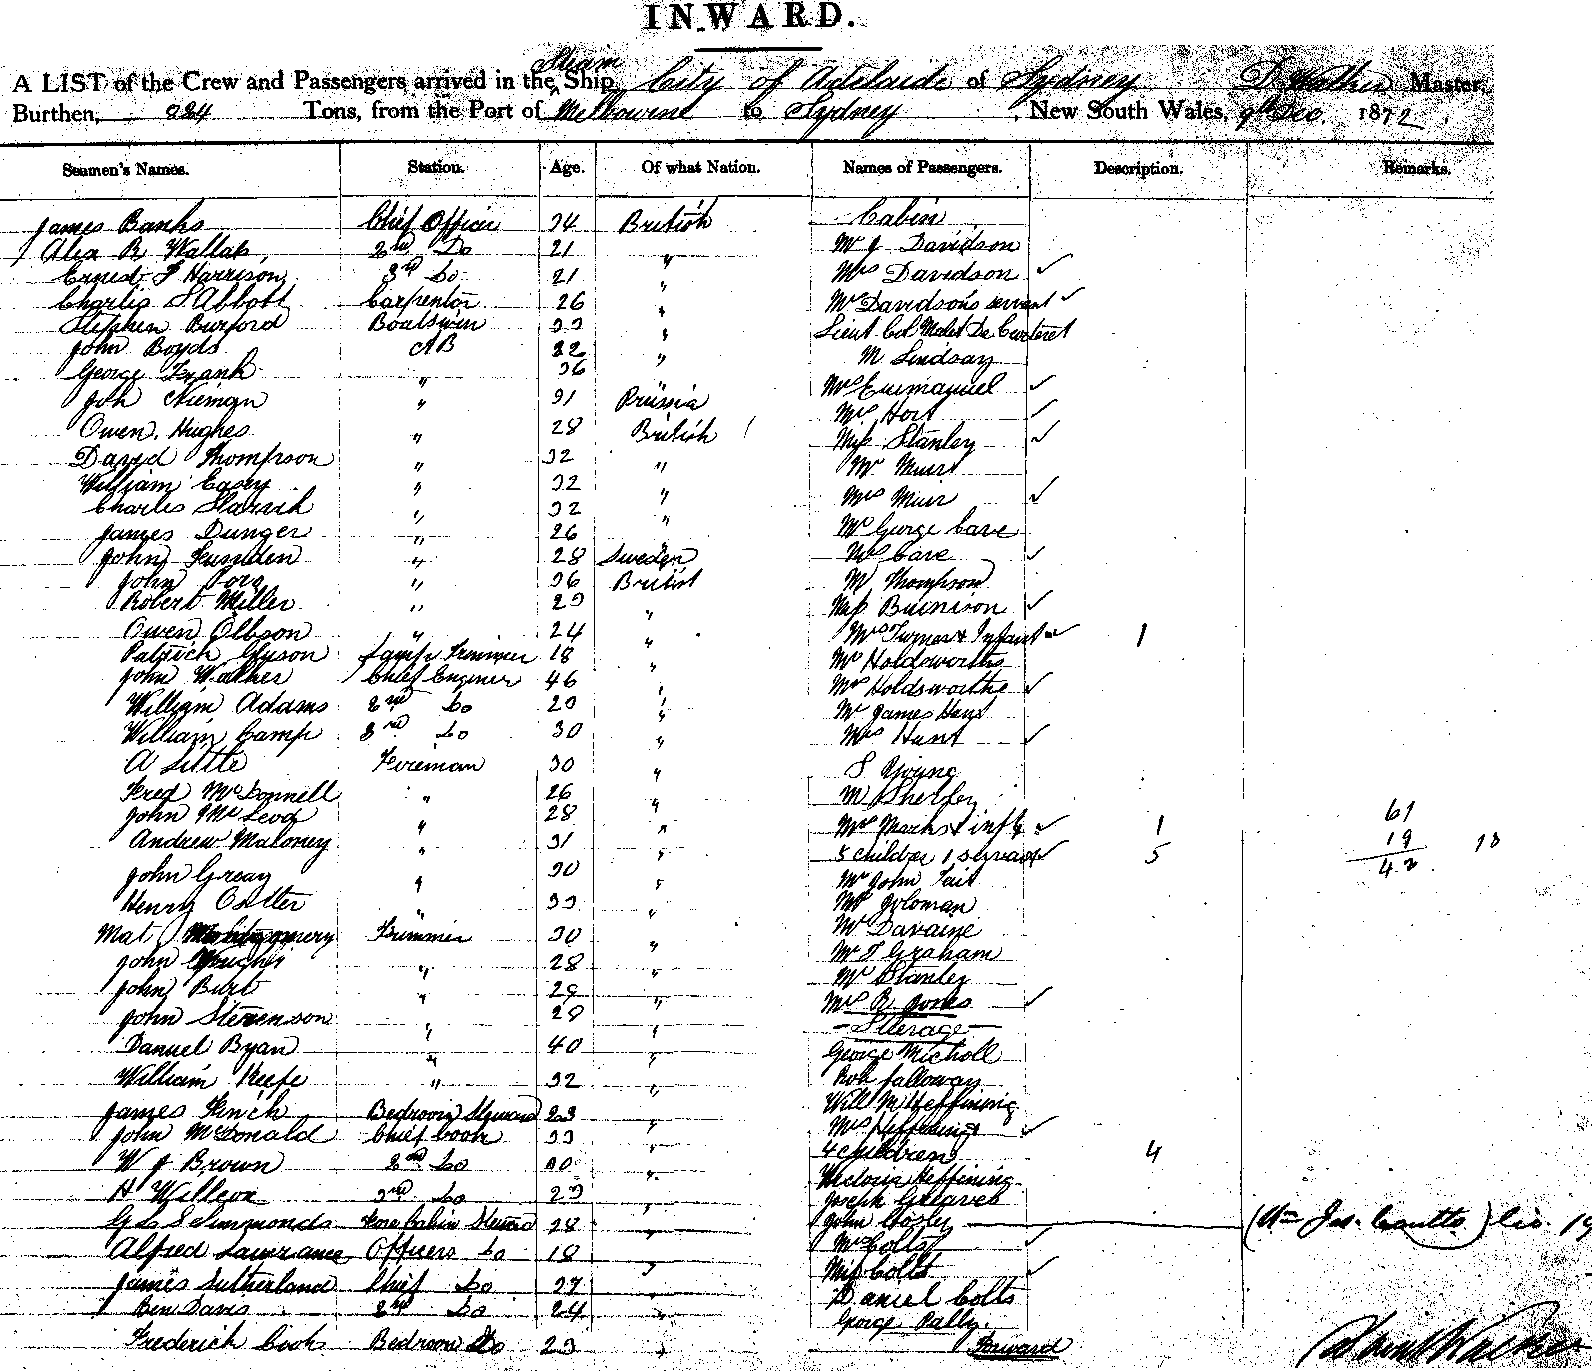 INWARD.
A LIST of the Crew and Passengers arrived in the Steam Ship City of Adelaide of Sydney D Walker Master,
Burthen, 824 Tons, from the Port of Melbourne to Sydney, New South Wales, 9th Dec. 1872.
Seamen's Names. Station. Age. Of what Nation. Names of Passengers. Description. Remarks.
James Banks Chief Officer 34 British Cabin
Alex R Wallab 2nd Do 21 " Mr J Davidson
Ernest F Harrison 3rd Do 21 " Mrs Davidson ✓
Charles S Abbott Carpenter 26 " Mrs Davidson's servant ✓
Stephen Burford Boatswin 33 " Lieut Col Malet De Carteret
John Boyds AB 22 " M Lindsay
George Frank " 36 Mrs Emmanuel ✓
Joh Nieman " 31 Prussia Mrs Hort ✓
Owen Hughes " 28 British Miss Stanley ✓
David Thompson " 32 " Mr Muir
William Casey " 32 " Mrs Muir ✓
Charles " 32 " Mr George Cave
James Dunger " 26 " Mrs Cave ✓
John " 28 Sweden M Thompson
John " 36 British Miss Burnison ✓
Robert Miller " 23 " Mrs Turner & Infant ✓ 1
Owen Olbson " 24 " Mr Holdsworthe
Patrick Glyson Lamp Trimmer 18 " Mrs Holdsworthe ✓
John Walker Chief Engineer 46 " Mr James Hunt
William Adams 2nd Do 23 " Mrs Hunt ✓
William Camp 3rd Do 30 " S Young
A Little Fireman 30 " M
Fred McDonnell " 26 " Mrs Marks & inft ✓ 1 61
John McLeod " 28 " 5 children 1 servant ✓ 5 19 18
Andrew Maloney " 31 " Mr John Tait 42
John Greay " 30 " Mr Joloman
Henry Ostler " 33 " Mr Davaine
Mat Montgomery Trimmer 30 " Mr T Graham
John Hughes " 28 " Mr Stanley
John Burt " 29 " Mrs R Jones ✓
John Stevenson " 28 " Steerage
Daniel Ryan " 40 " George Micholl
William Keefe " 32 " Rob Falloway
James Finch Bedroom Steward 23 " Will M Heffining
John McDonald Chief Cook 33 " Mrs Heffining ✓
W J Brown 2nd Do 30 " 4 children 4
H Willcox 3rd Do 23 " Victoria Heffining
G L S Simmonds Fore Cabin Steward 28 " Joseph Greaves
Alfred Lawrance Officers Do 18 " John Cosly (Un Jas. Coutts)
James Sutherland Chief Do 37 " Mrs Colts ✓
Ben Davis 2nd Do 24 " Miss Colts ✓
Frederick Cook Bedroom Do 23 " Daniel Colts
George Rally.
Forward